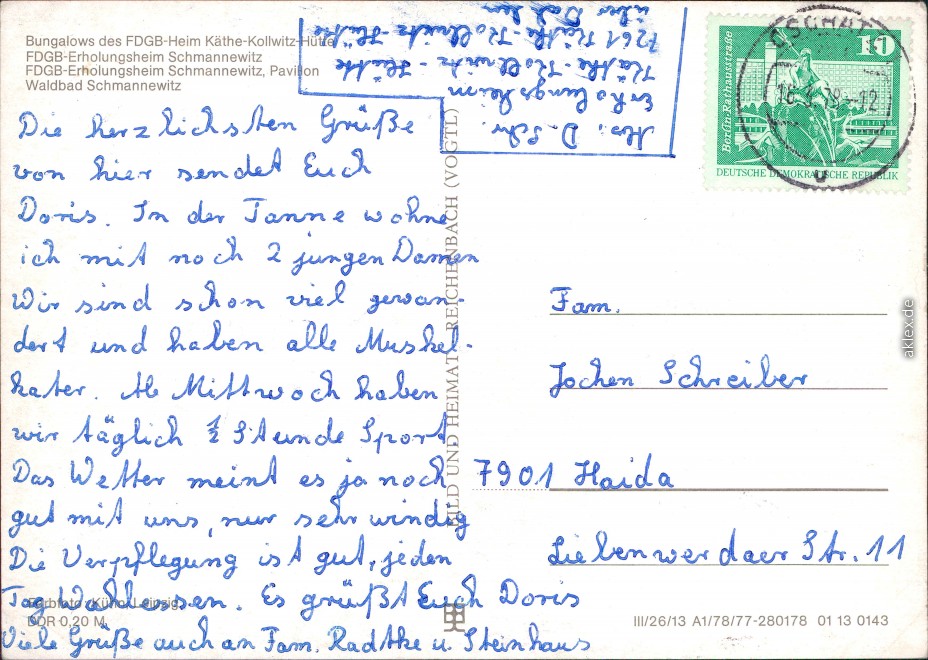 Bungalows des FDGB-Heim Käthe-Kollwitz-Hütte
FDGB-Erholungsheim Schmannewitz
FDGB-Erholungsheim Schmannewitz, Pavillon
Waldbad Schmannewitz
Die herzlichsten Grüße
von hier sendet Euch
Doris. In der Tanne wohne
ich mit noch 2 jungen Damen
Wir sind schon viel gewan-
dert und haben alle Muskel-
kater. Ab Mittwoch haben
wir täglich ½ Stunde Sport
Das Wetter meint es ja noch
gut mit uns, nur sehr windig
Die Verpflegung ist gut, jeden
Tag Wahlessen. Es grüßt Euch Doris
Viele Grüße auch an Fam. Radtke u. Steinhaus
Farbfoto: Kühn, Leipzig
DDR 0,20 M
Abs.: D. Schr.
Erholungsheim
Käthe-Kollwitz-Hütte
7261 Käthe-Kollwitz-Hütte
über Dahlen
BILD UND HEIMAT REICHENBACH (VOGTL)
Berlin, Rathausstraße
10
DEUTSCHE DEMOKRATISCHE REPUBLIK
OSCHATZ
-12
Fam.
Jochen Schreiber
7901 Haida
Liebenwerdaer Str. 11
III/26/13 A1/78/77-280178 01 13 0143
aklex.de